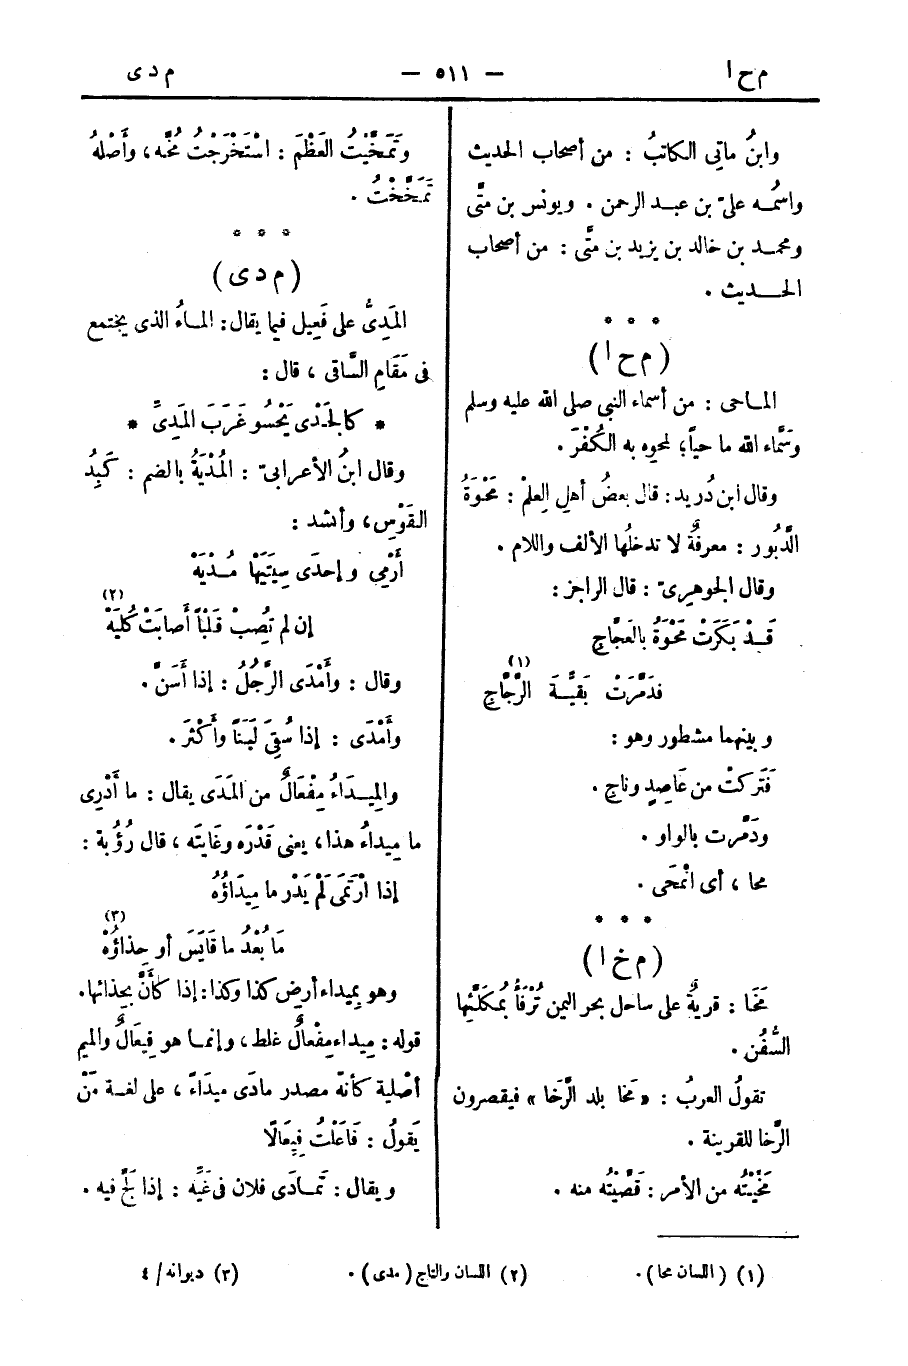 م ح ا — ٥١١ — م د ى
وابنُ ماتِى الكاتبُ : من أصحاب الحديث
واسمُه علىّ بن عبد الرحمن . ويونس بن متَّى
ومحمد بن خالد بن يزيد بن متَّى : من أصحاب
الحديث .
* * *
( م ح ا )
الماحى : من أسماء النبى صلى الله عليه وسلم
وسَمَّاه الله ماحياً؛ لمحوِه به الكُفْرَ .
وقال ابن دُريد : قال بعضُ أهلِ العِلمْ : مَحْوَةُ
الدَّبُور : معرفةٌ لا تدخلُها الألف واللام .
وقال الجوهرىّ : قال الراجز :
قَدْ بَكَرَتْ مَحْوَةُ بالعَجَّاجِ
فدَمَّرَتْ بَقيَّةَ الرَّجَّاجِ (١)
وبينهما مشطور وهو :
فَتَركتْ من عَاصِدٍ وناجِ .
ودَمَّرت بالواو .
محا ، أى انْمحَى .
* * *
( م خ ا )
مَخَا : قريةٌ على ساحل بحر اليمن تُرْفَأُ بمُكَلَّئِها
السُّفُن .
تقولُ العربُ : « مَخا بلد الرَّخا » فيقصرون
الرَّخا للقرينة .
مَخَّيْتُه من الأمر : قَصَّيْتُه منه .
وتَمَخَّيْتُ العَظْمَ : اسْتَخْرَجتُ مُخَّه ، وأَصْلهُ
تَمَخَّخْتُ .
* * *
( م د ى )
المَدِىُّ على فَعِيل فيما يقال : الماءُ الذى يجتمع
فى مَقَامِ السَّاقى ، قال :
* كالجَدْىِ يَحْسُو غَرَبَ المَدِىِّ *
وقال ابنُ الأعرابىّ : المُدْيَةُ بالضم : كَبِدُ
القَوْس ، وأنشد :
أَرْمِى وإحدَى سِيَتَيْها مُدْيَهْ
إن لم تُصِبْ قَلْباً أصابَتْ كُليَهْ (٢)
وقال : وأَمْدَى الرَّجُلُ : إذا أَسَنَّ .
وأَمْدَى : إذا سُقِىَ لَبَناً وأَكْثَرَ .
والمِيدَاءُ مِفْعَالٌ من المَدَى يقال : ما أَدْرِى
ما مِيداءُ هذا ، يعنى قَدْرَه وغَايَتَه ، قال رُؤْبة :
إذا ارْتَمَى لَمْ يَدْرِ ما مِيدَاؤُهُ
مَا بُعْدُ ما قَايَسَ أو حِذاؤُهْ (٣)
وهو بِميداء أرضِ كذا وكذا : إذا كَأنَّ بحِذائها .
قوله : مِيداء مِفْعالٌ غلط ، وإنما هو فِيعَالٌ والميم
أصْلية كأنّه مصدر مادَى مِيدَاءً ، على لغة مَنْ
يَقولُ : فَاعَلْتُ فِيعَالًا
ويقال : تَمادَى فلان فى غَيِّه : إذا لَجَّ فيه .
(١) ( اللسان محا ) . (٢) اللسان والتاج ( مدى ) . (٣) ديوانه / ٤